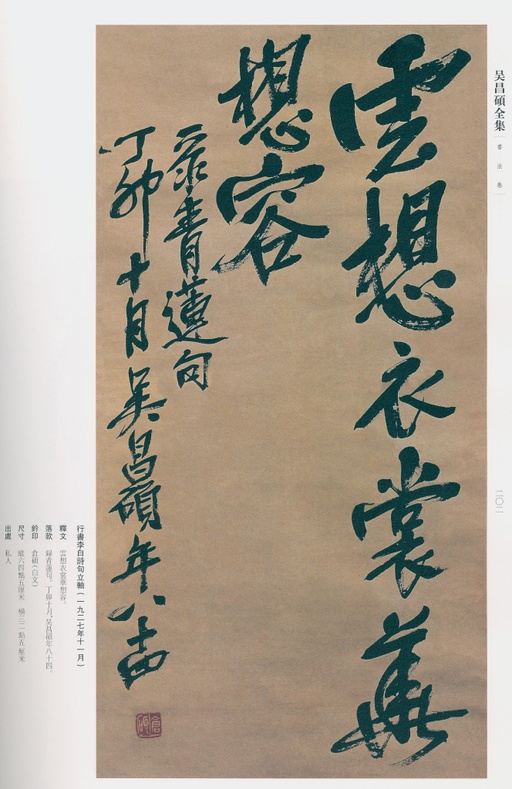 吴昌碩全集
書法卷
二〇二
雲想衣裳華
想容
录青蓮句
丁卯十月吴昌碩年八十四
倉碩
行書李白詩句立軸（一九二七年十一月）
釋文　雲想衣裳華想容。
落款　録青蓮句。丁卯十月，吴昌碩年八十四。
鈐印　倉碩（白文）
尺寸　縱六四點五厘米　橫三一點五厘米
出處　私人